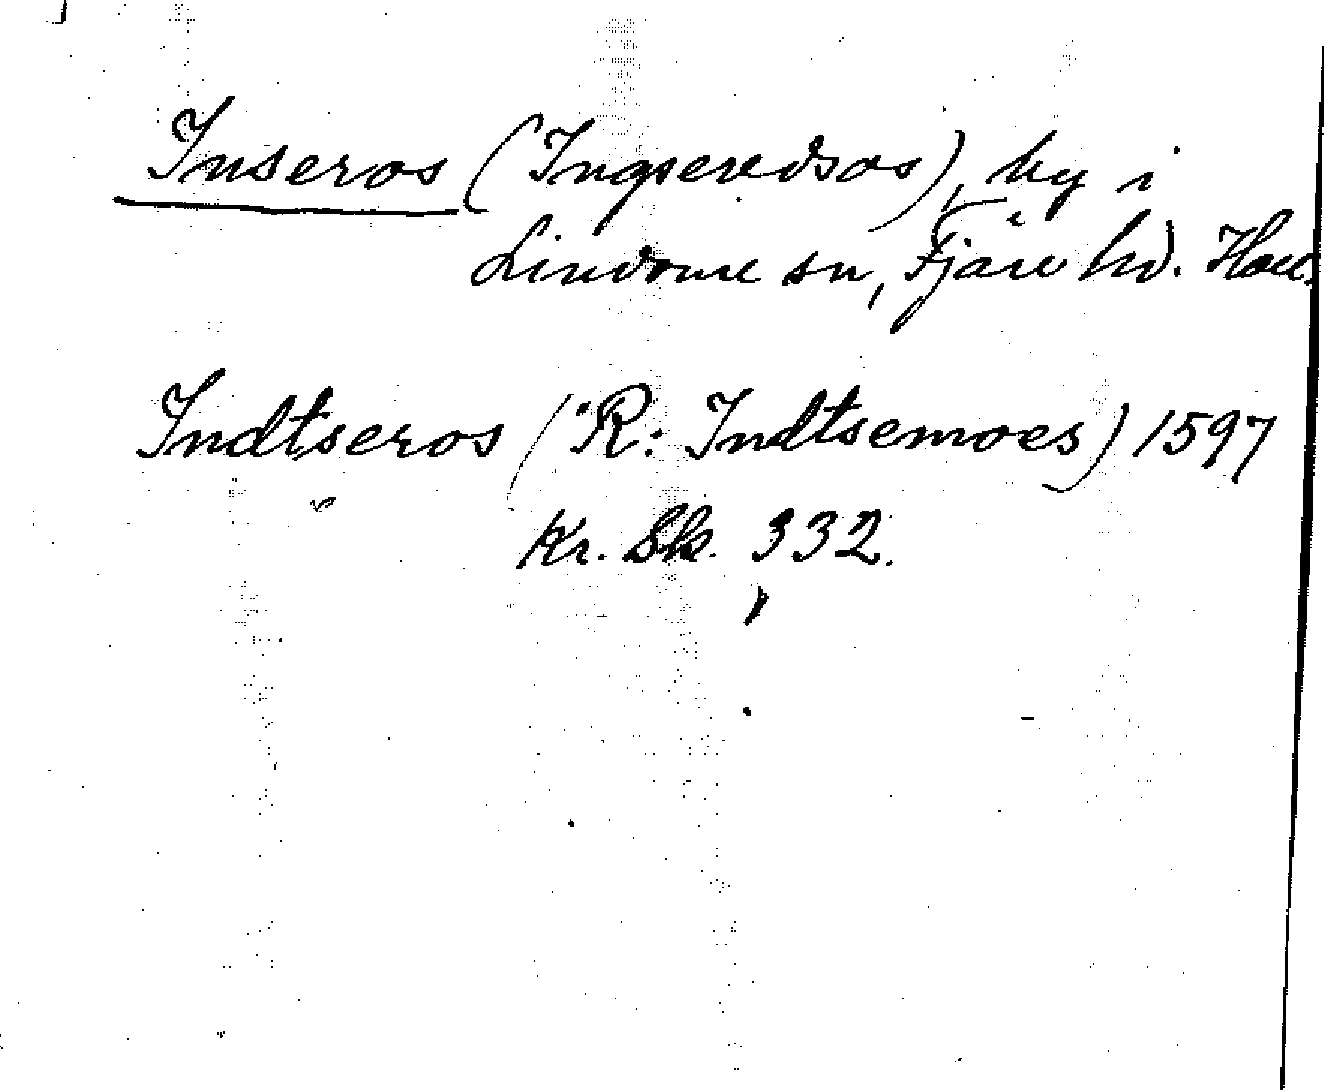 Inseros (Ingseredsos), by i
Lindome sn, Fjäre hd. Hall.
Indtseros (R: Indtsemoes) 1597
Kr. Sk. 332.